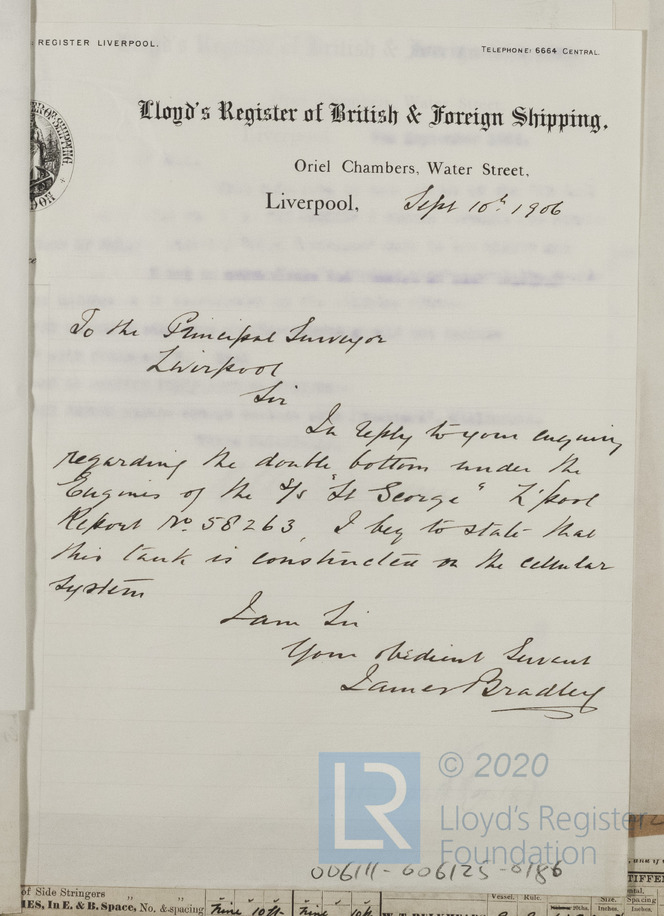 REGISTER LIVERPOOL.
TELEPHONE: 6664 CENTRAL.
Lloyd's Register of British & Foreign Shipping,
Oriel Chambers, Water Street,
Liverpool, Sept 10th 1906
To the Principal Surveyor
Liverpool
Sir
In reply to your enquiry
regarding the double bottom under the
Engines of the S/s "St George" L'pool
Report No 58263, I beg to state that
this tank is constructed on the cellular
system
I am Sir
Your obedient Servant
James Bradley
© 2020
LR
Lloyd's Register
Foundation
006111-006125-0186
of Side Stringers
IES, In E. & B. Space, No. & spacing
Vessel. Rule.
Inches. Inches.
Spacing